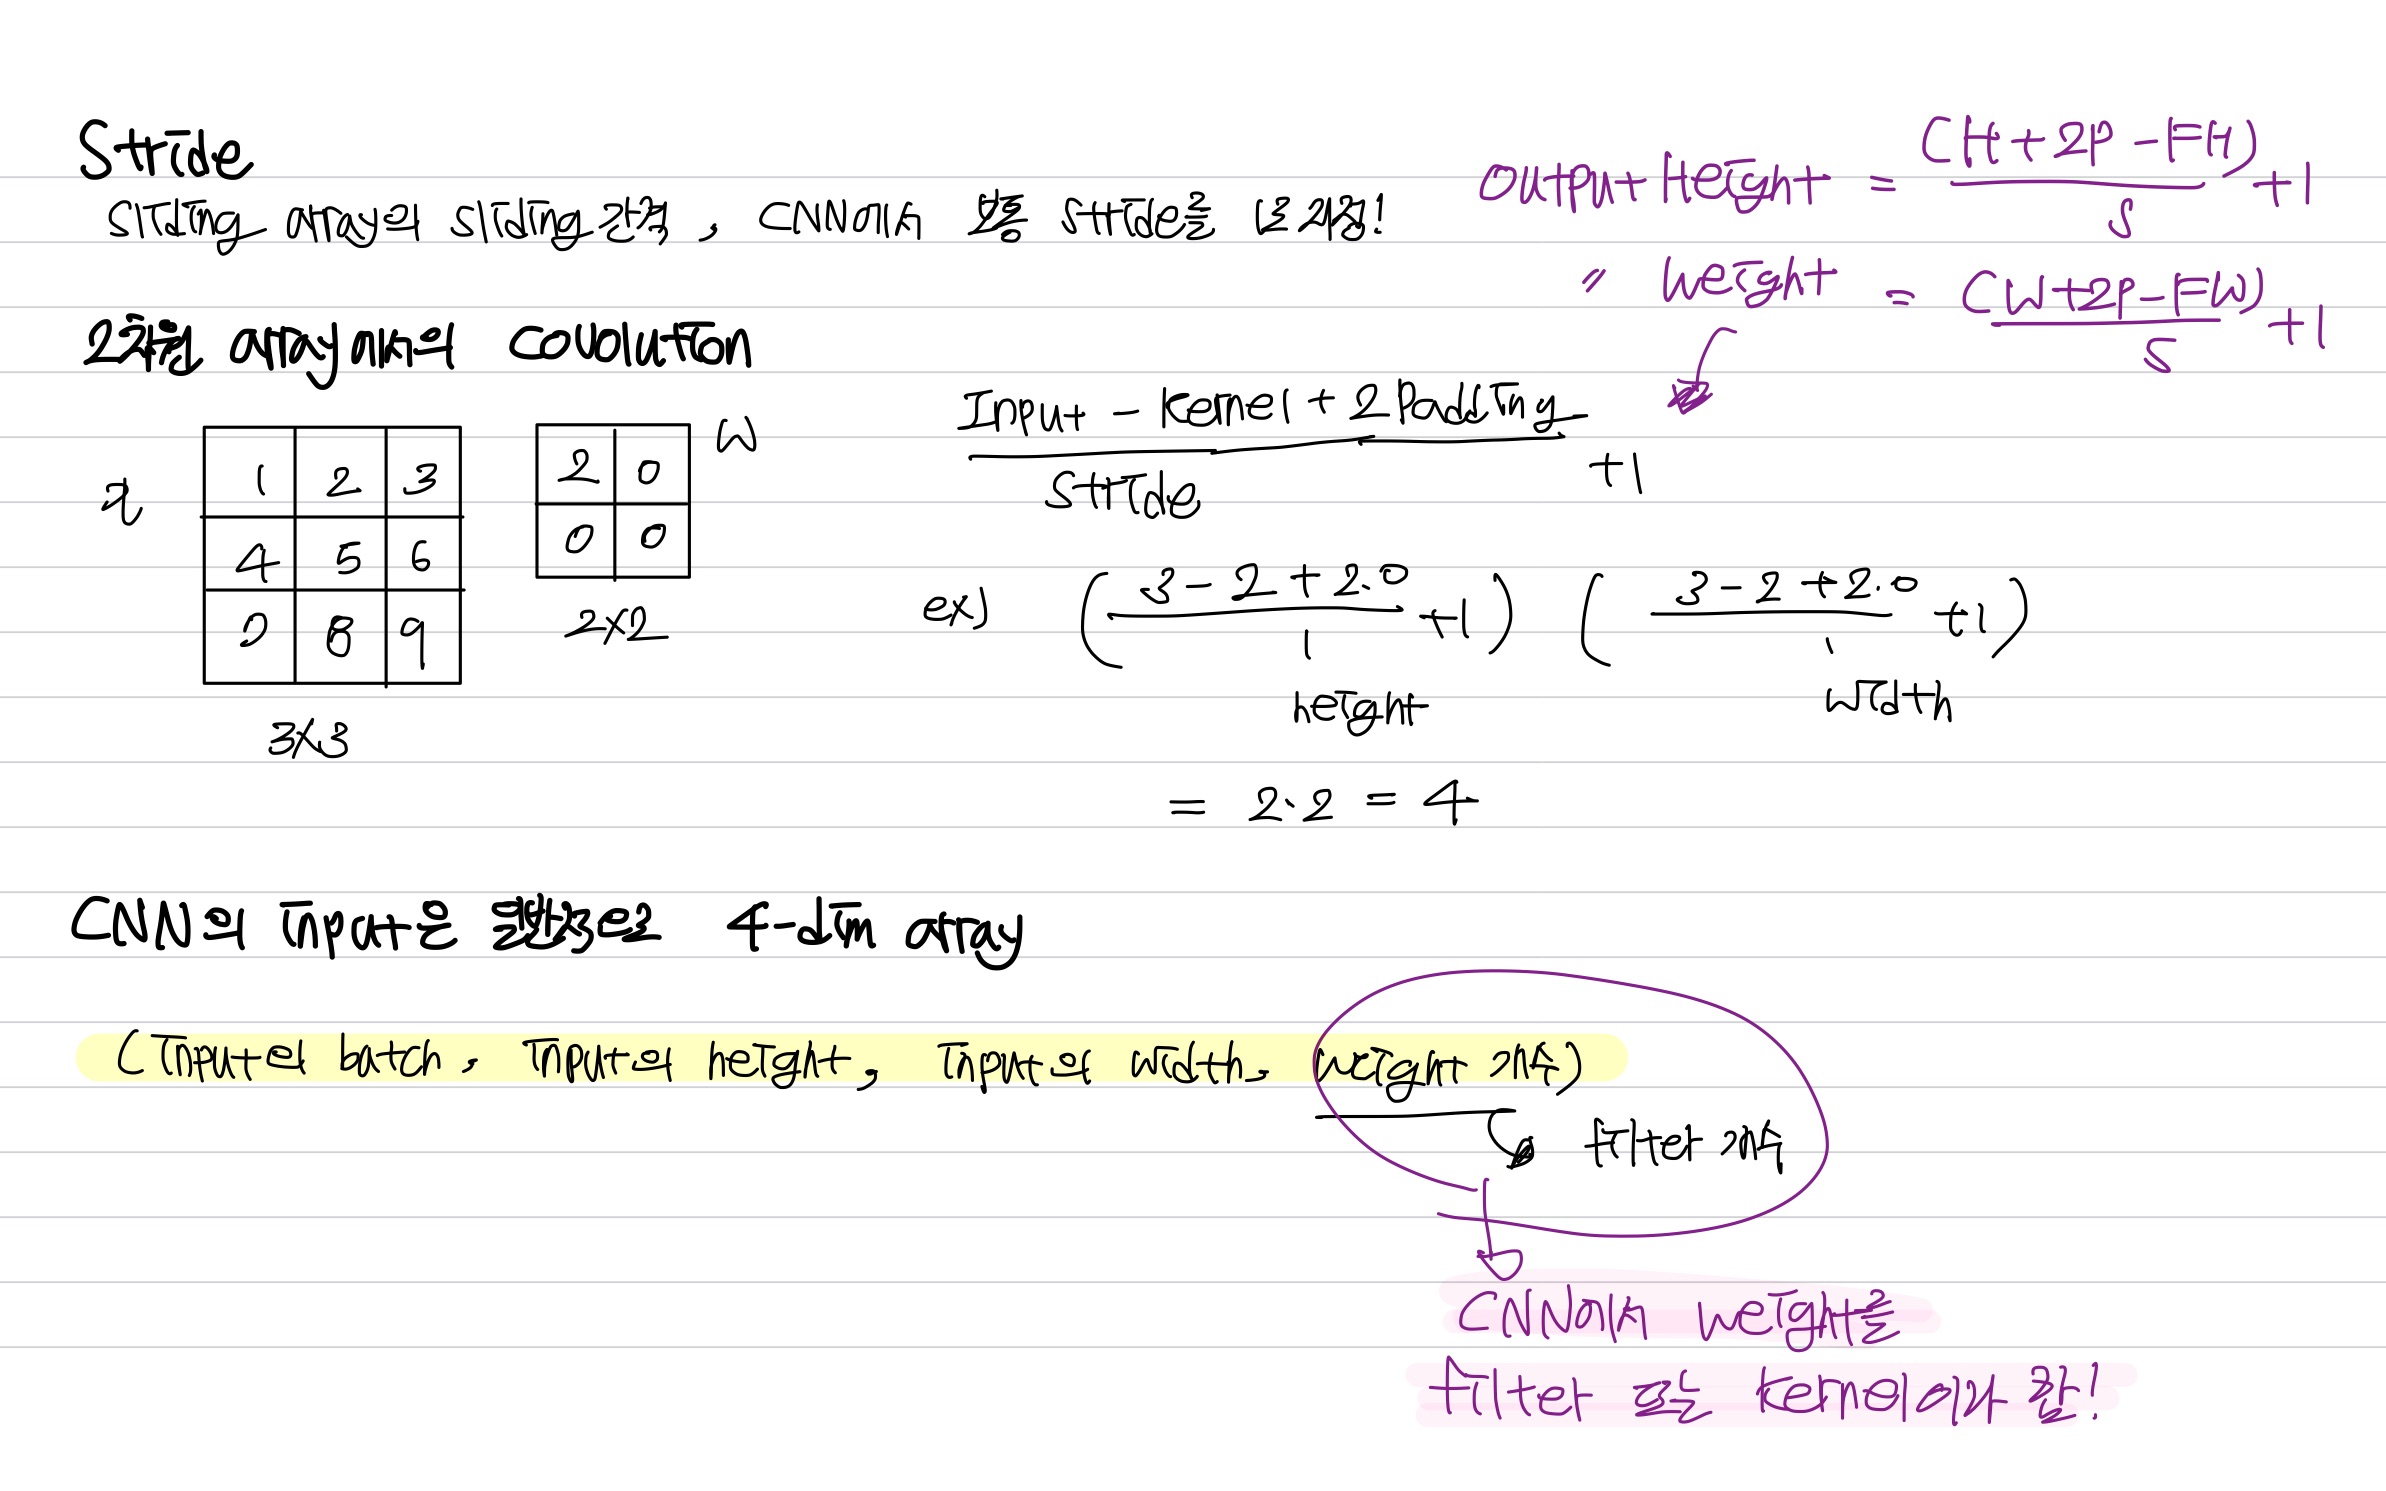 Stride
Sliding array의 sliding 간격, CNN에서 보통 stride는 1로 고정!
Output Height = (H + 2P - FH) / S + 1
〃 weight = (W + 2P - FW) / S + 1
2차원 array에서의 covolution
x
1 2 3
4 5 6
7 8 9
3×3
2 0
0 0
w
2×2
Input - kernel + 2 Padding / Stride + 1
ex) (3 - 2 + 2·0 / 1 + 1) (3 - 2 + 2·0 / 1 + 1)
height width
= 2·2 = 4
CNN의 input은 일반적으로 4-dim array
(Input의 batch, input의 height, input의 width, weight 개수)
filter 개수
CNN에서 weight를
filter 또는 kernel이라 함!